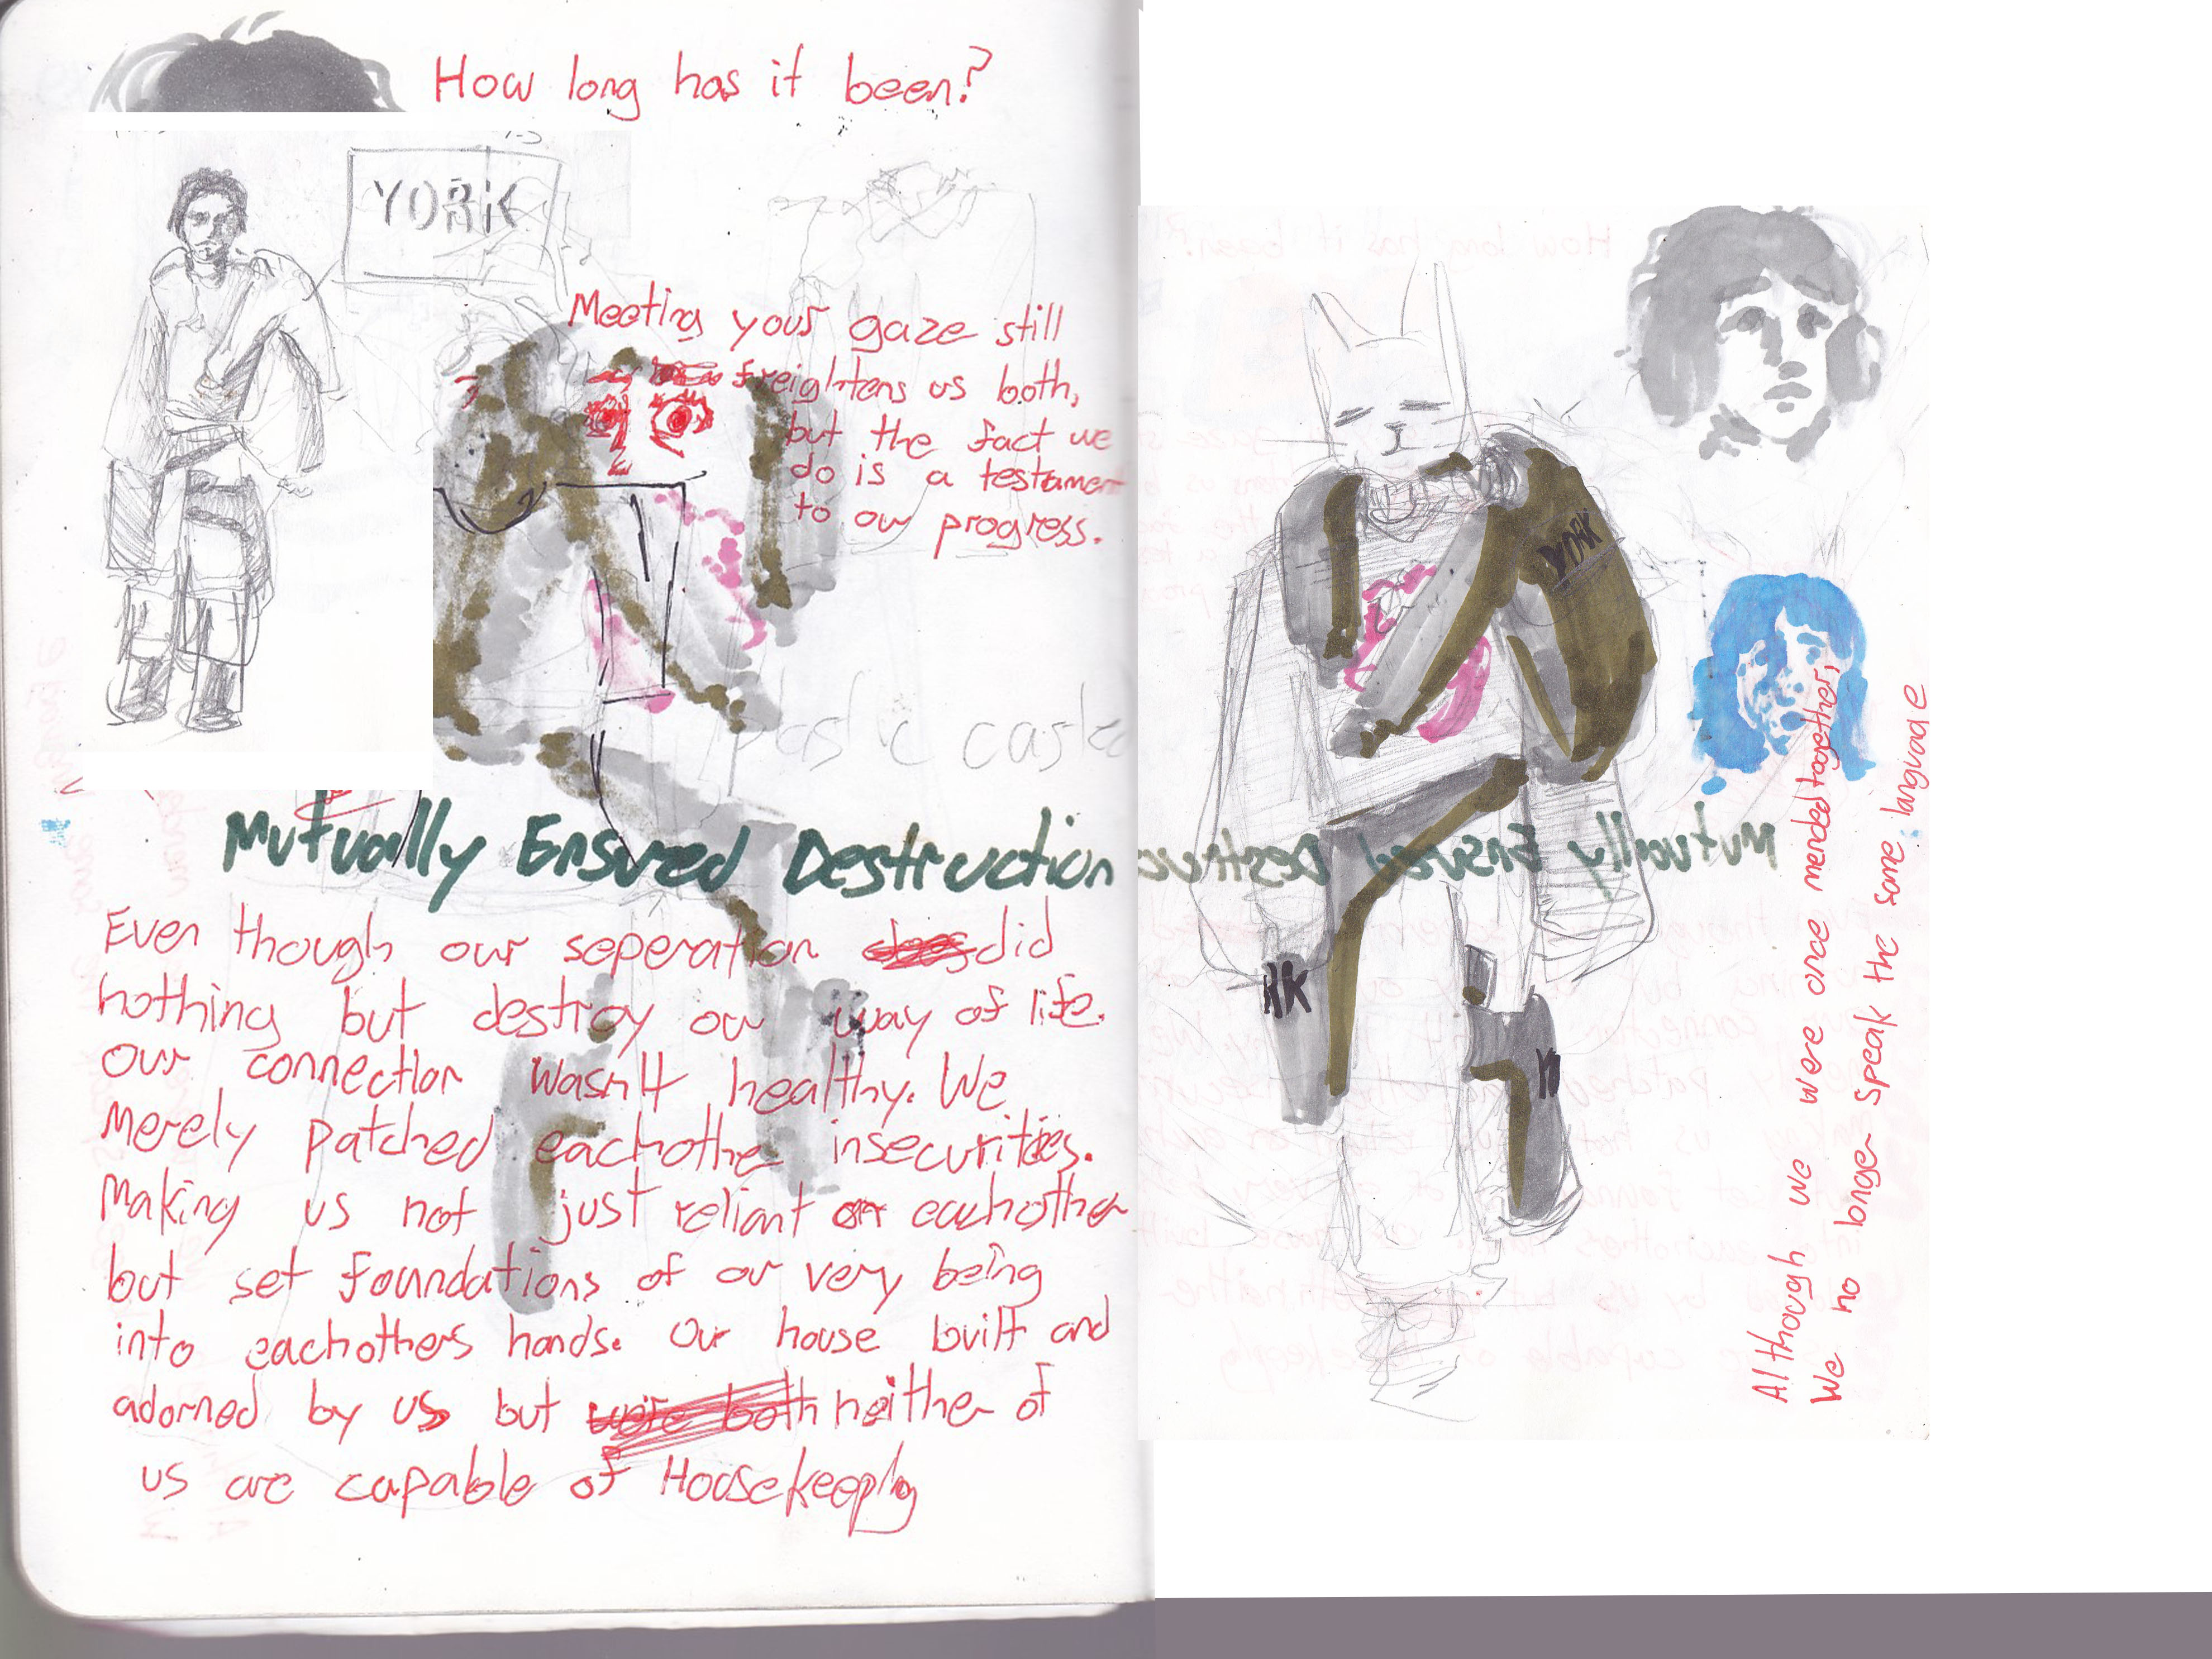 How long has it been?
YORK
Meeting your gaze still
freightens us both,
but the fact we
do is a testament
to our progress.
Mutually Ensured Destruction
Even though our seperation did
nothing but destroy our way of life.
Our connection wasn't healthy. We
merely patched eachother insecurities.
Making us not just reliant on eachother
but set foundations of our very being
into eachothers hands. Our house built and
adorned by us but were both neither of
us are capable of Housekeeping
YORK
RK
Although we were once mended together,
We no longer speak the same language